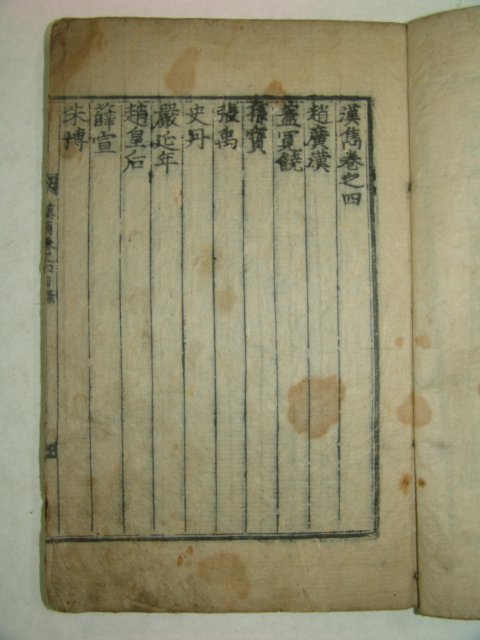 漢雋卷之四
趙廣漢
蓋寬饒
孫寶
張禹
史丹
嚴延年
趙皇后
薛宣
朱博
漢雋卷之四目錄